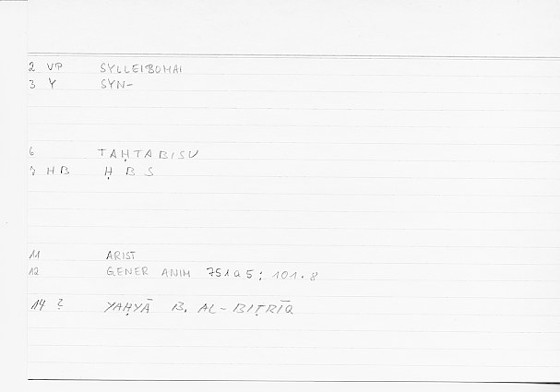 2 VP SYLLEIBOMAI
3 Y SYN-
6 TAḤTABISU
7 HB Ḥ B S
11 ARIST
12 GENER ANIM 751a5; 101.8
14 ? YAḤYĀ B. AL-BIṬRĪQ